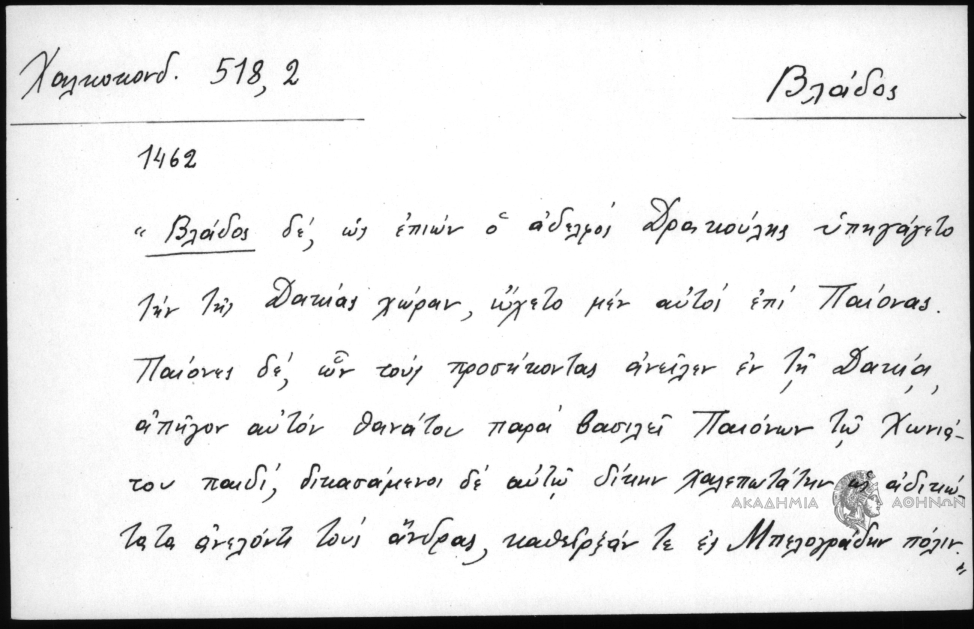 Χαλκοκονδ. 518,2
Βλάδος
1462
“Βλάδος δέ, ὡς ἐπιών ὁ ἀδελφός Δρακούλης ὑπηγάγετο
τήν τῆς Δακίας χώραν, ᾤχετο μέν αὐτός ἐπί Παίονας.
Παίονες δέ, ὧν τούς προσήκοντας ἀνεῖλεν ἐν τῇ Δακίᾳ,
ἀπῆγον αὐτόν θανάτου παρά βασιλεῖ Παιόνων τῷ Χωνιά-
του παιδί, δικασάμενοι δέ αὐτῷ δίκην χαλεπωτάτην ὡς ἀδικώ-
τατα ἀνελόντι τούς ἄνδρας, καθεῖρξάν τε ἐς Μπελογράδην πόλιν.”
ΑΚΑΔΗΜΙΑ ΑΘΗΝΩΝ